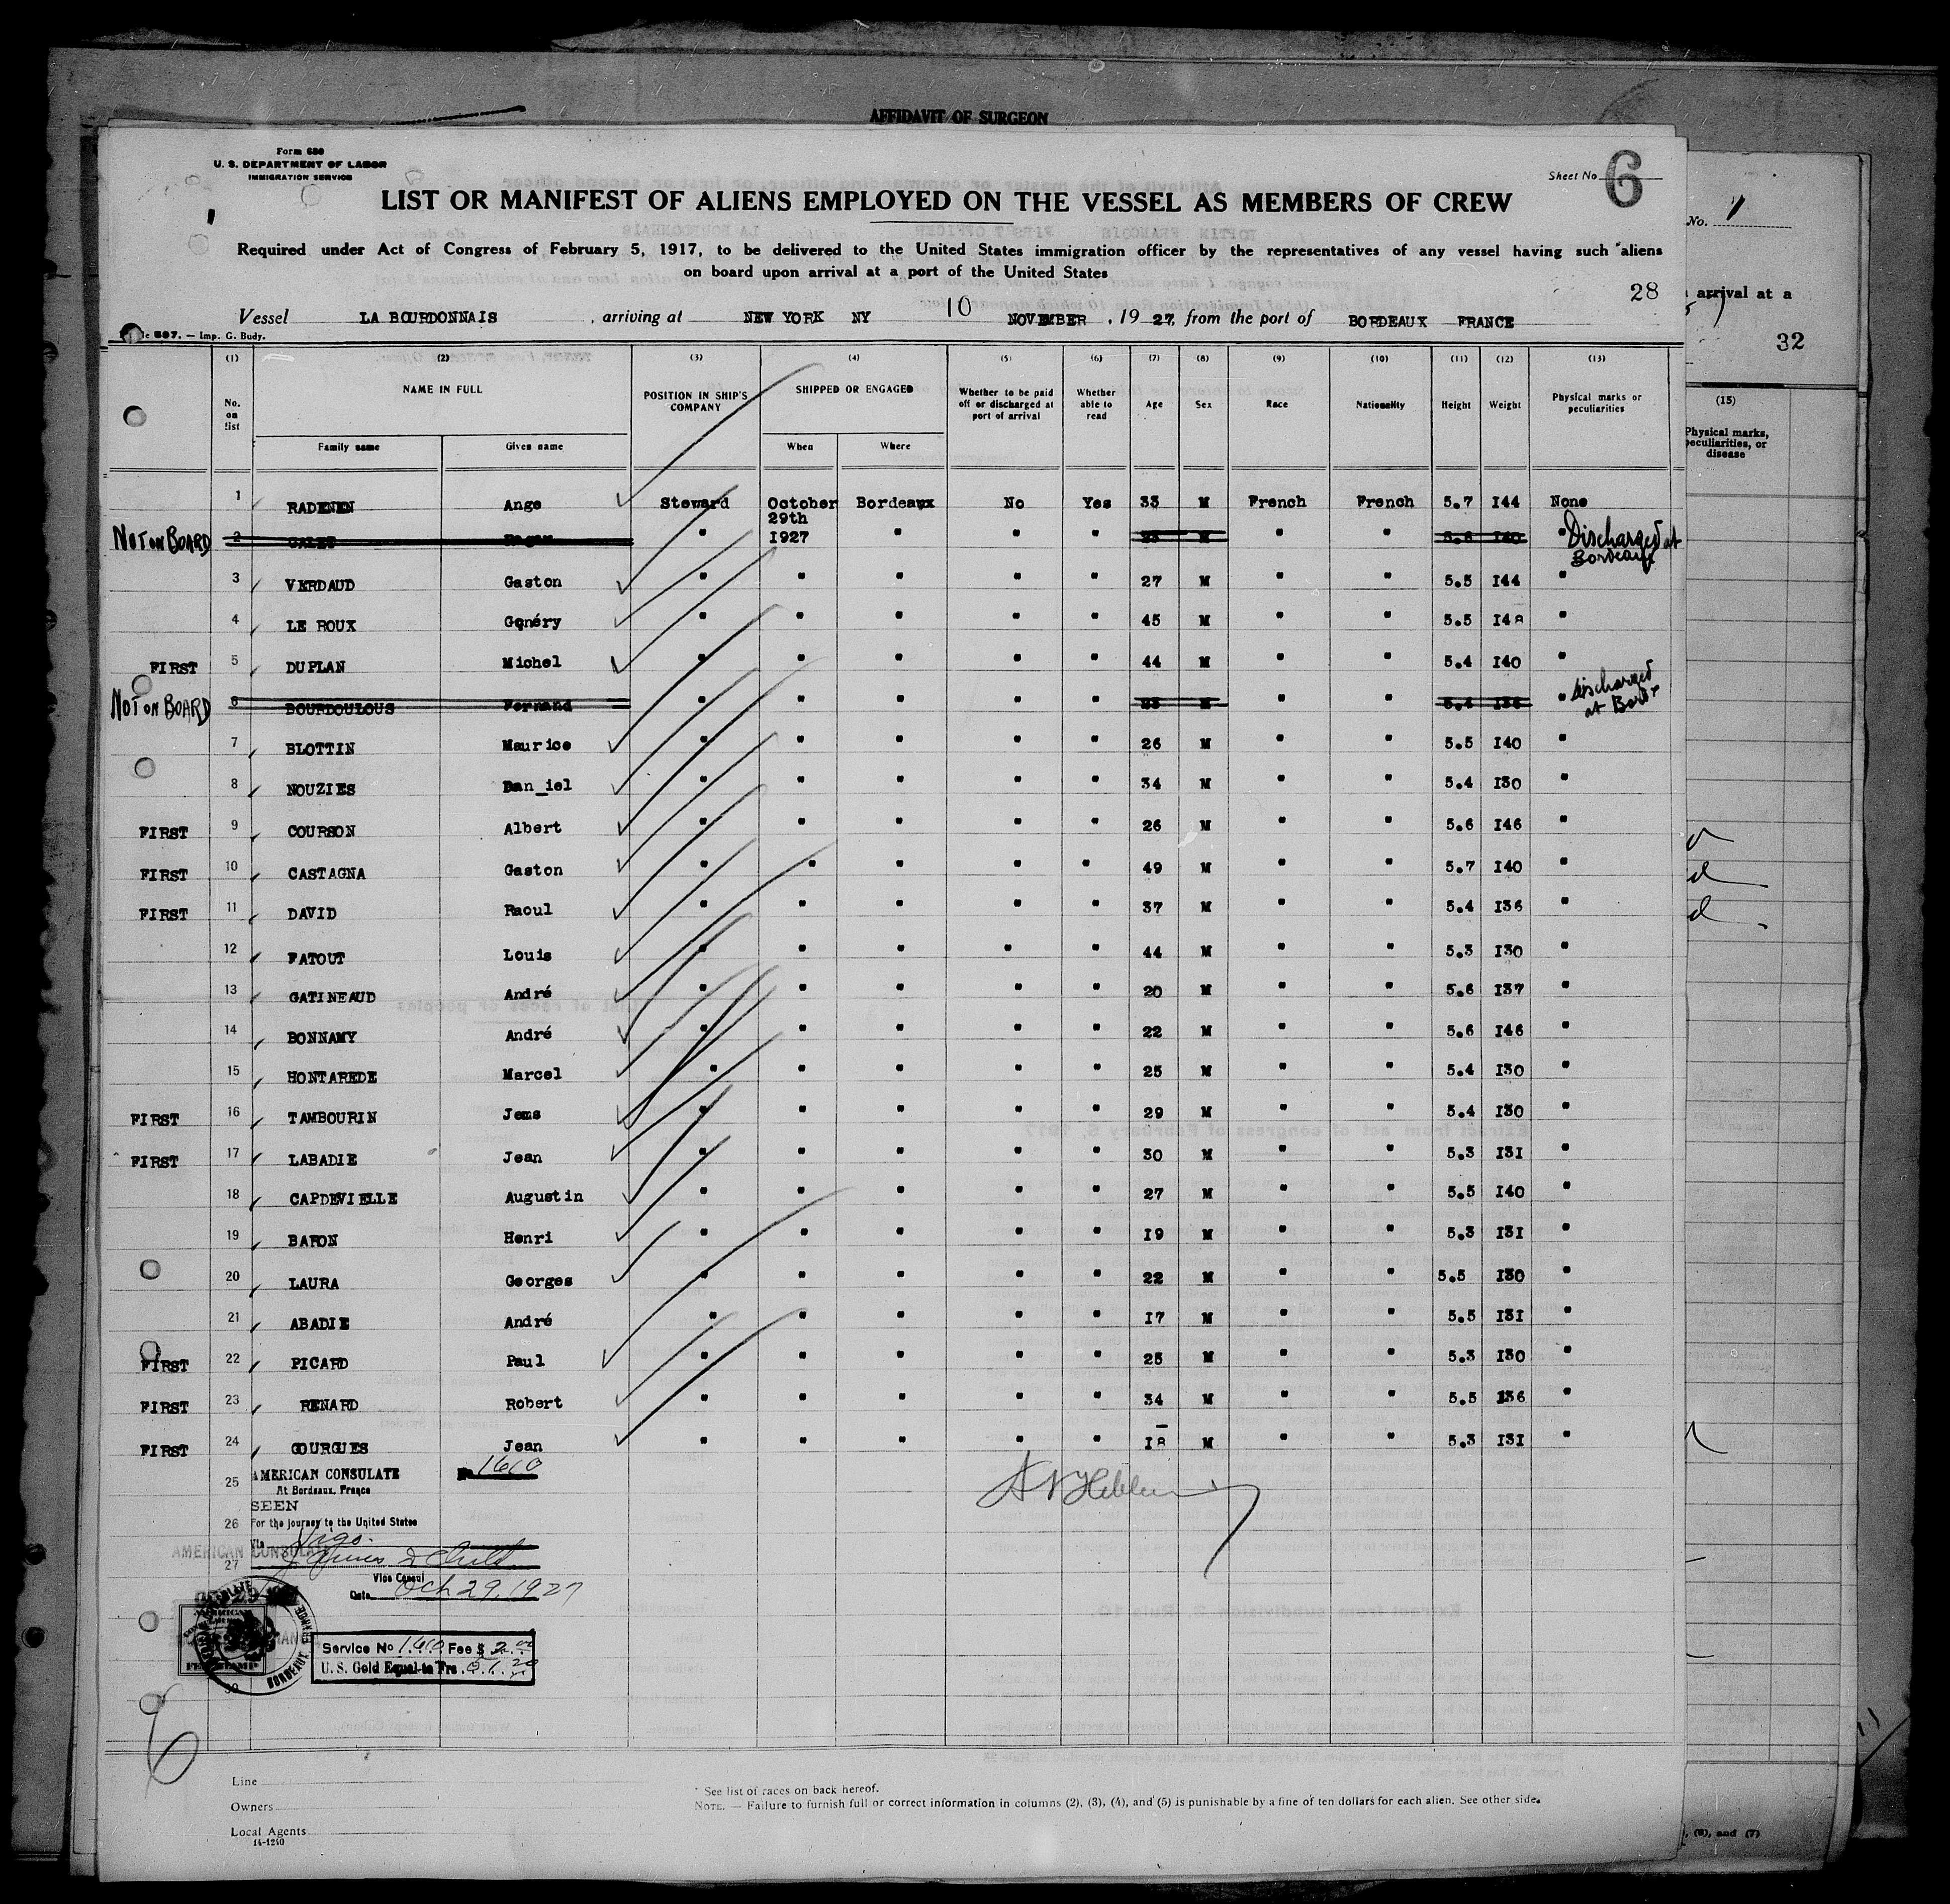 AFFIDAVIT OF SURGEON
Form 680
U. S. DEPARTMENT OF LABOR
IMMIGRATION SERVICE
Sheet No 6
LIST OR MANIFEST OF ALIENS EMPLOYED ON THE VESSEL AS MEMBERS OF CREW
Required under Act of Congress of February 5, 1917, to be delivered to the United States immigration officer by the representatives of any vessel having such aliens
on board upon arrival at a port of the United States
28
Vessel LA BOURDONNAIS , arriving at NEW YORK NY 10 NOVEMBER , 19 27, from the port of BORDEAUX FRANCE
597. — Imp. G. Budy.
(1) (2) (3) (4) (5) (6) (7) (8) (9) (10) (11) (12) (13)
No. on list NAME IN FULL Family name Given name POSITION IN SHIP'S COMPANY SHIPPED OR ENGAGED When Where Whether to be paid off or discharged at port of arrival Whether able to read Age Sex Race Nationality Height Weight Physical marks or peculiarities
1 RADENEN Ange Steward October 29th 1927 Bordeaux No Yes 33 M French French 5.7 144 None
NOT ON BOARD 2 " " " " " M " " 140 " Discharged at Bordeaux
3 VERDAUD Gaston " " " " " 27 M " " 5.5 144 "
4 LE ROUX Gonéry " " " " " 45 M " " 5.5 148 "
FIRST 5 DUPLAN Michel " " " " " 44 M " " 5.4 140 "
NOT ON BOARD 6 BOURDOULOUS Fernand " " " " " M " " 5.4 " discharged at Bordx
7 BLOTTIN Maurice " " " " " 26 M " " 5.5 140 "
8 NOUZIES Dan_iel " " " " " 34 M " " 5.4 130 "
FIRST 9 COURSON Albert " " " " " 26 M " " 5.6 146 "
FIRST 10 CASTAGNA Gaston " " " " " 49 M " " 5.7 140 "
FIRST 11 DAVID Raoul " " " " " 37 M " " 5.4 136 "
12 FATOUT Louis " " " " " 44 M " " 5.3 130 "
13 GATINEAUD André " " " " " 20 M " " 5.6 137 "
14 BONNAMY André " " " " " 22 M " " 5.6 146 "
15 HONTAREDE Marcel " " " " " 25 M " " 5.4 130 "
FIRST 16 TAMBOURIN Jems " " " " " 29 M " " 5.4 130 "
FIRST 17 LABADIE Jean " " " " " 30 M " " 5.3 131 "
18 CAPDEVIELLE Augustin " " " " " 27 M " " 5.5 140 "
19 BARON Henri " " " " " 19 M " " 5.3 131 "
20 LAURA Georges " " " " " 22 M " " 5.5 130 "
21 ABADIE André " " " " " 17 M " " 5.5 131 "
FIRST 22 PICARD Paul " " " " " 25 M " " 5.3 130 "
FIRST 23 RENARD Robert " " " " " 34 M " " 5.5 136 "
FIRST 24 GOURGUES Jean " " " " " 18 M " " 5.3 131 "
25 AMERICAN CONSULATE No 1610
At Bordeaux, France
SEEN
26 For the journey to the United States
Via Vigo
AMERICAN CONSULATE
27
Vice Consul
Date Oct 29, 1927
Service No 1610 Fee $ 2.00
U. S. Gold Equal to Frs. 51.20
BORDEAUX, FRANCE
30
6
Line
Owners
Local Agents
14-1240
* See list of races on back hereof.
NOTE. — Failure to furnish full or correct information in columns (2), (3), (4), and (5) is punishable by a fine of ten dollars for each alien. See other side.
No. 1
arrival at a
32
(15)
Physical marks, peculiarities, or disease
, (6), and (7)